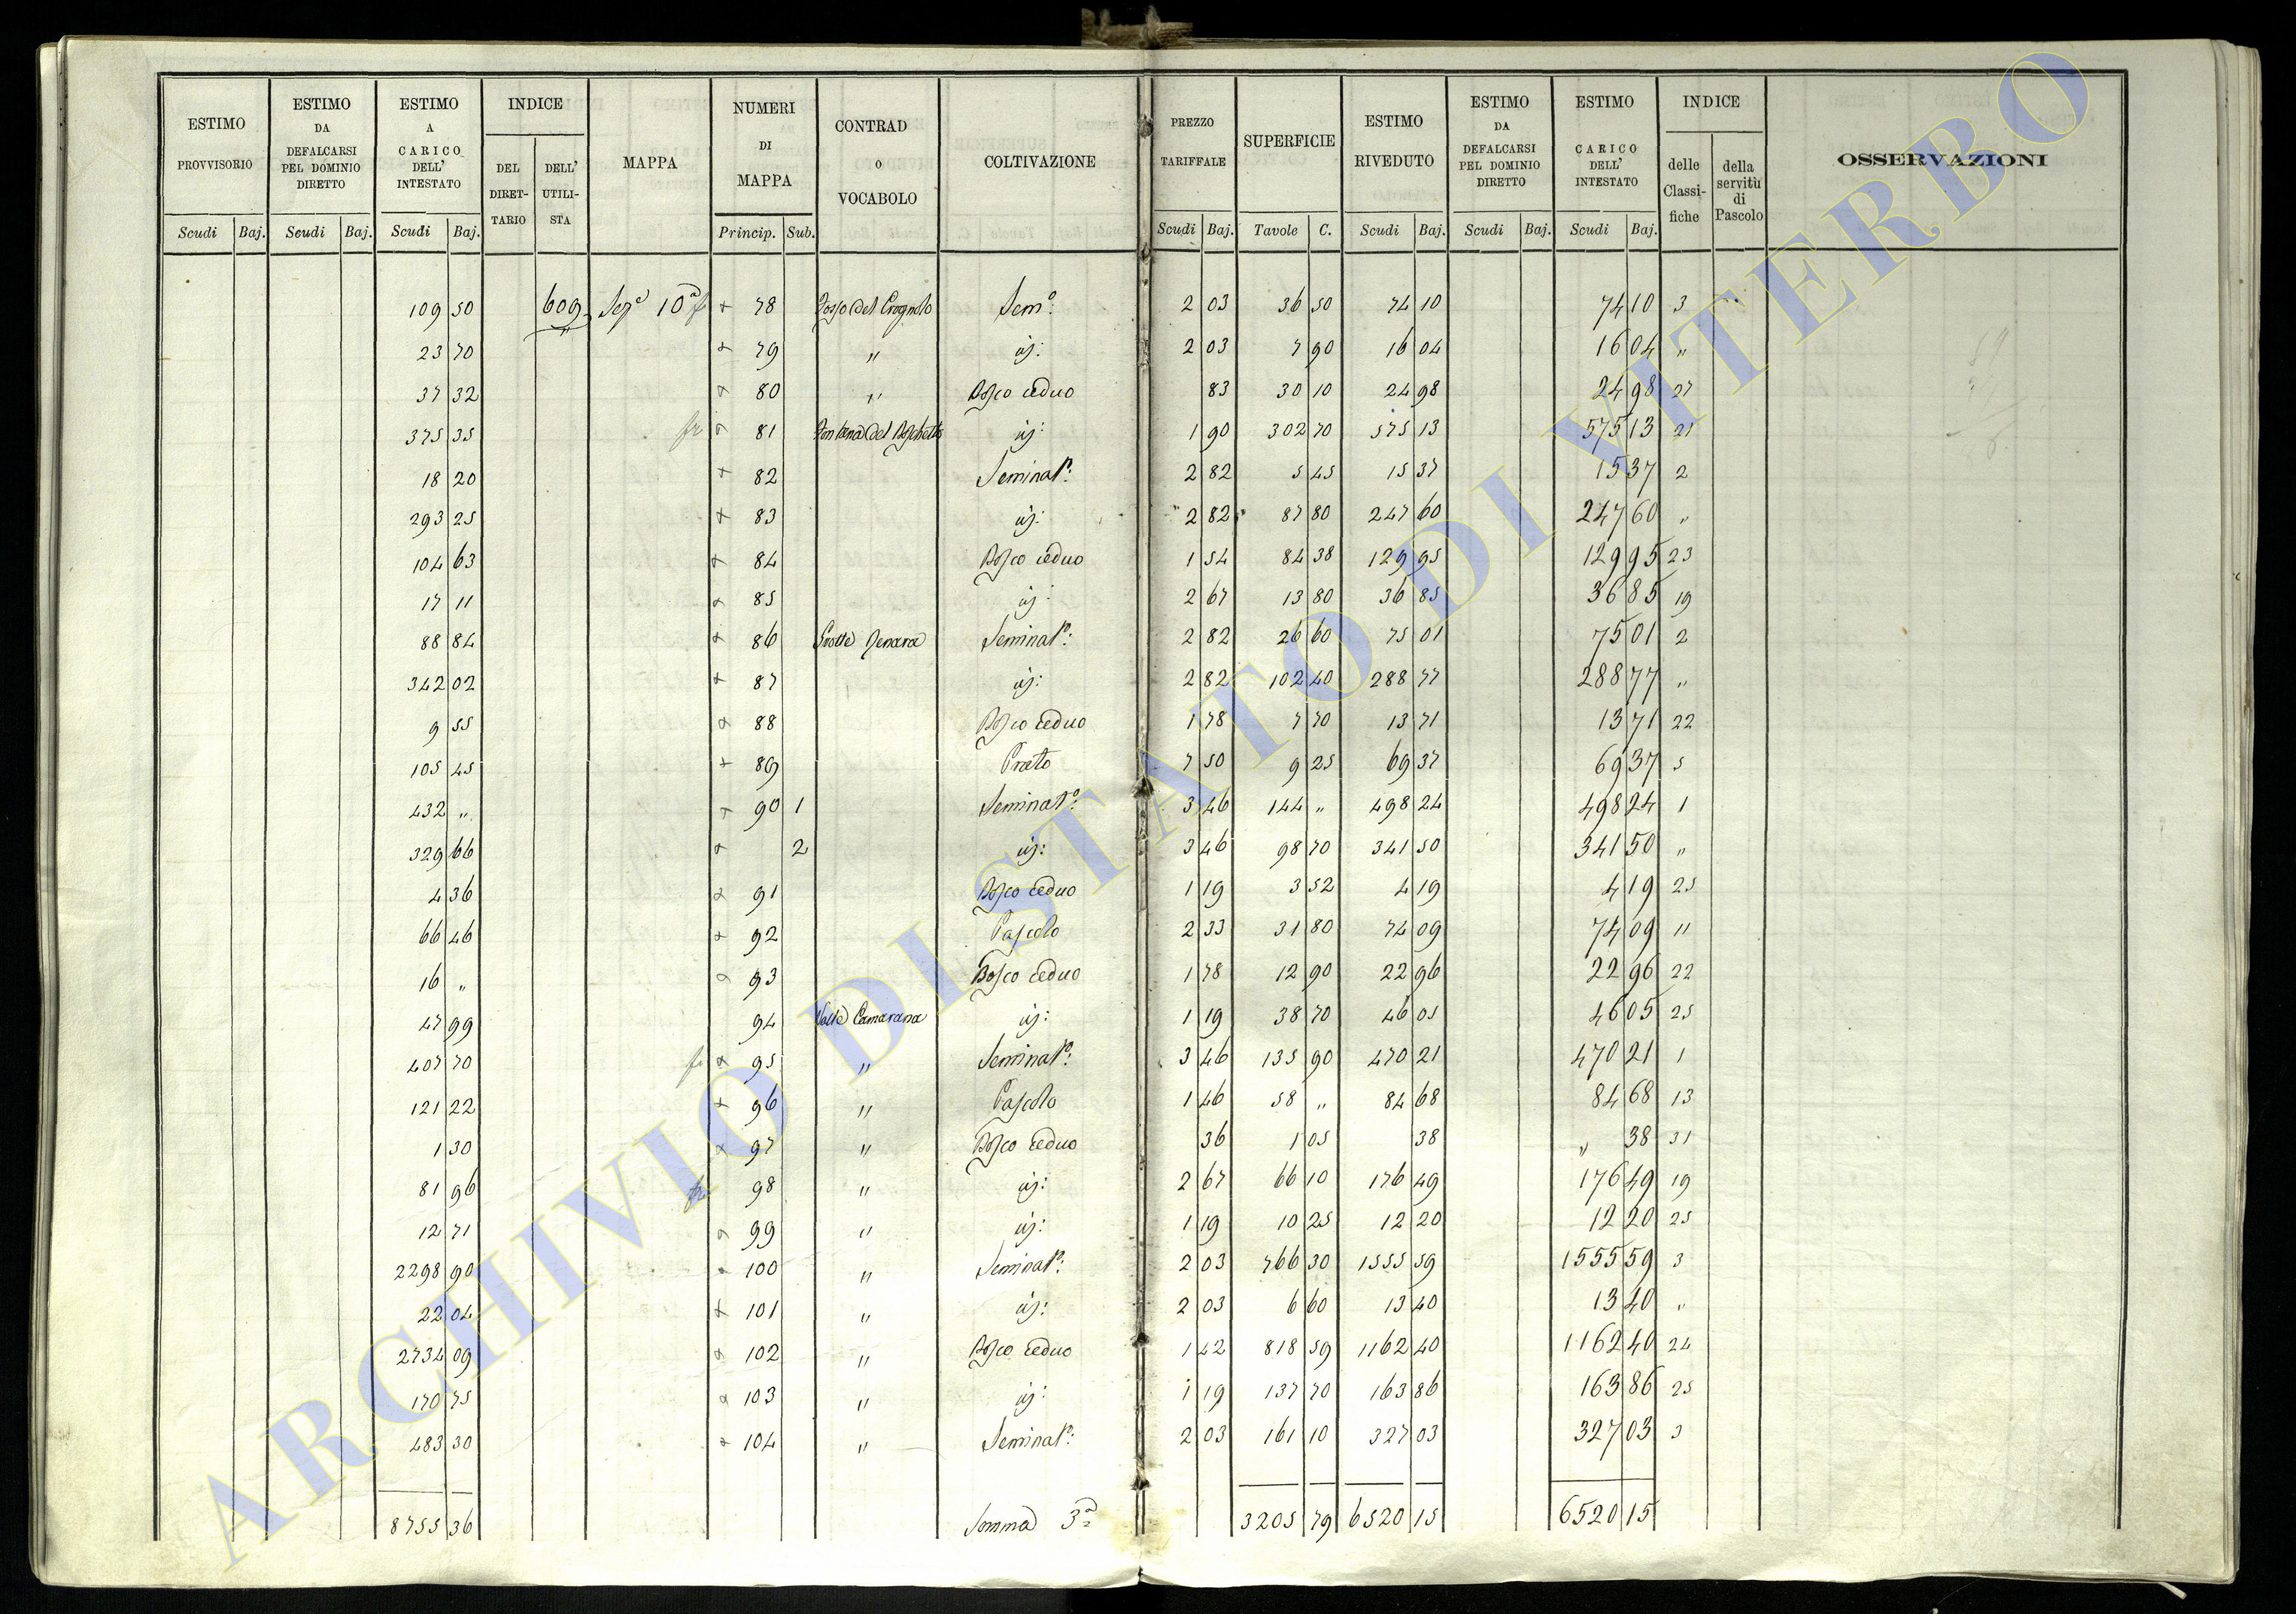 ESTIMO PROVVISORIO | ESTIMO DA DEFALCARSI PEL DOMINIO DIRETTO | ESTIMO A CARICO DELL' INTESTATO | INDICE DEL DIRETTARIO | DELL' UTILISTA | MAPPA | NUMERI DI MAPPA | CONTRAD O VOCABOLO | COLTIVAZIONE | PREZZO TARIFFALE | SUPERFICIE | ESTIMO RIVEDUTO | ESTIMO DA DEFALCARSI PEL DOMINIO DIRETTO | ESTIMO A CARICO DELL' INTESTATO | INDICE delle Classifiche | della servitù di Pascolo | OSSERVAZIONI
Scudi | Baj. | Scudi | Baj. | Scudi | Baj. | Princip. | Sub. | Scudi | Baj. | Tavole | C. | Scudi | Baj. | Scudi | Baj. | Scudi | Baj.
109 50 | 609 | Sezᵉ 10ª | 78 | Fosso del Crognolo | Semº: | 2 03 | 36 50 | 74 10 | 74 10 | 3
23 70 | 79 | " | id: | 2 03 | 7 90 | 16 04 | 16 04 | "
37 32 | 80 | " | Bosco ceduo | 83 | 30 10 | 24 98 | 24 98 | 27
375 35 | 81 | Fontana del Boschetto | id: | 1 90 | 302 70 | 575 13 | 575 13 | 21
18 20 | 82 | Seminatº: | 2 82 | 5 45 | 15 37 | 15 37 | 2
293 25 | 83 | id: | 2 82 | 87 80 | 247 60 | 247 60 | "
104 63 | 84 | Bosco ceduo | 1 54 | 84 38 | 129 95 | 129 95 | 23
17 11 | 85 | id: | 2 67 | 13 80 | 36 85 | 36 85 | 19
88 84 | 86 | Seminatº: | 2 82 | 26 60 | 75 01 | 75 01 | 2
342 02 | 87 | id: | 2 82 | 102 40 | 288 77 | 288 77 | "
9 55 | 88 | Bosco ceduo | 1 78 | 7 70 | 13 71 | 13 71 | 22
105 45 | 89 | Prato | 7 50 | 9 25 | 69 37 | 69 37 | 5
432 " | 90 | 1 | Seminatº: | 3 46 | 144 " | 498 24 | 498 24 | 1
329 66 | 2 | id: | 3 46 | 98 70 | 341 50 | 341 50 | "
4 36 | 91 | Bosco ceduo | 1 19 | 3 52 | 4 19 | 4 19 | 25
66 46 | 92 | Pascolo | 2 33 | 31 80 | 74 09 | 74 09 | 11
16 " | 93 | Bosco ceduo | 1 78 | 12 90 | 22 96 | 22 96 | 22
47 99 | 94 | Valle Camarana | id: | 1 19 | 38 70 | 46 05 | 46 05 | 25
407 70 | 95 | " | Seminatº: | 3 46 | 135 90 | 470 21 | 470 21 | 1
121 22 | 96 | " | Pascolo | 1 46 | 58 " | 84 68 | 84 68 | 13
1 30 | 97 | " | Bosco ceduo | 36 | 1 05 | 38 | " 38 | 31
81 96 | 98 | " | id: | 2 67 | 66 10 | 176 49 | 176 49 | 19
12 71 | 99 | " | id: | 1 19 | 10 25 | 12 20 | 12 20 | 25
2298 90 | 100 | " | Seminatº: | 2 03 | 766 30 | 1555 59 | 1555 59 | 3
22 04 | 101 | " | id: | 2 03 | 6 60 | 13 40 | 13 40 | "
2734 09 | 102 | " | Bosco ceduo | 1 42 | 818 59 | 1162 40 | 1162 40 | 24
170 75 | 103 | " | id: | 1 19 | 137 70 | 163 86 | 163 86 | 25
483 30 | 104 | " | Seminatº: | 2 03 | 161 10 | 327 03 | 327 03 | 3
8755 36 | Somma 3ª | 3205 79 | 6520 15 | 6520 15
ARCHIVIO DI STATO DI VITERBO